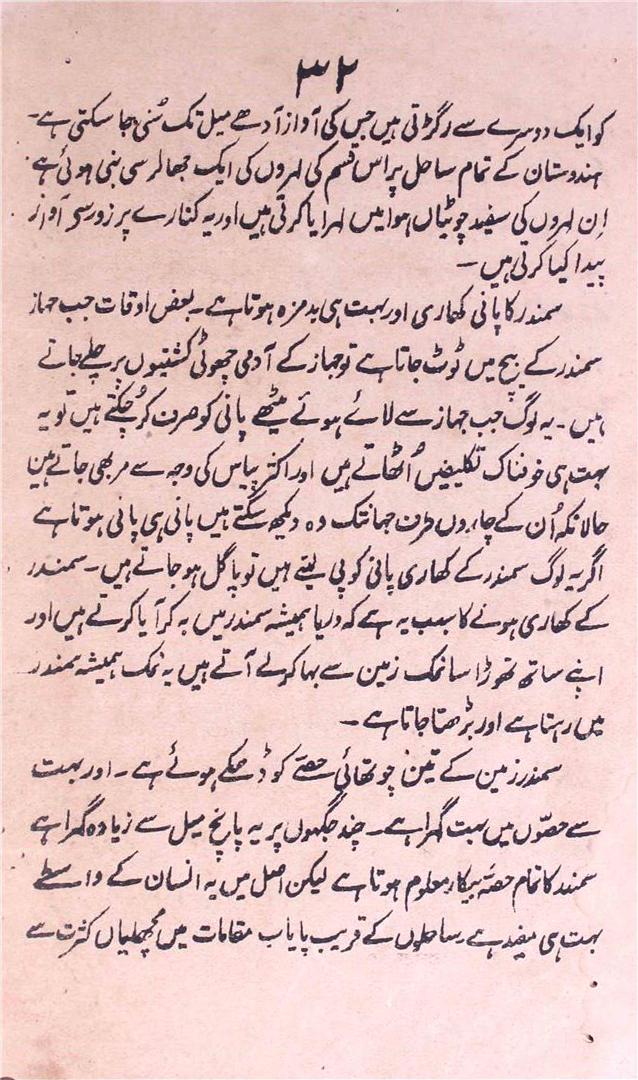 ۳۲
کو ایک دوسرے سے رگڑتی ہیں جس کی آواز آدھے میل تک سُنی جا سکتی ہے۔
ہندوستان کے تمام ساحل پر اس قسم کی لہروں کی ایک جھالر سی بنی ہوئی ہے
اِن لہروں کی سفید چوٹیاں ہوا میں لہرایا کرتی ہیں اور یہ کنارے پر زور سی آواز
پیدا کیا کرتی ہیں ۔
سمندر کا پانی کھاری اور بہت ہی بدمزہ ہوتا ہے۔ بعض اوقات جب جہاز
سمندر کے بیچ میں ٹوٹ جاتا ہے تو جہاز کے آدمی چھوٹی کشتیوں پر چلے جاتے
ہیں۔ یہ لوگ جب جہاز سے لائے ہوئے میٹھے پانی کو صرف کر چُکتے ہیں تو یہ
بہت ہی خوفناک تکلیفیں اُٹھاتے ہیں اور اکثر پیاس کی وجہ سے مر بھی جاتے ہین
حالانکہ اُن کے چاروں طرف جہانتک وہ دیکھ سکتے ہیں پانی ہی پانی ہوتا ہے
اگر یہ لوگ سمندر کے کھاری پانی کو پی لیتے ہیں تو پاگل ہو جاتے ہیں۔ سمندر
کے کھاری ہونے کا سبب یہ ہے کہ دریا ہمیشہ سمندر میں بہ کر آیا کرتے ہیں اور
اپنے ساتھ تھوڑا سا نمک زمین سے بہا کر لے آتے ہیں یہ نمک ہمیشہ سمندر
میں رہتا ہے اور بڑھتا جاتا ہے ۔
سمندر زمین کے تین چوتھائی حصّے کو ڈھکے ہوئے ہے ۔ اور بہت
سے حصّوں میں بہت گہرا ہے۔ چند جگہوں پر یہ پانچ میل سے زیادہ گہرا ہے
سمندر کا تمام حصّہ بیکار معلوم ہوتا ہے لیکن اصل میں یہ انسان کے واسطے
بہت ہی مفید ہے ساحلوں کے قریب پایاب مقامات میں مچھلیاں کثرت سے